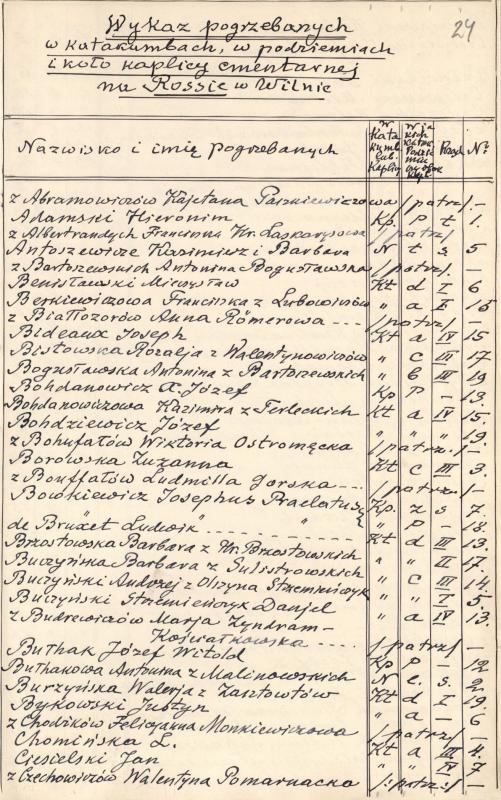 24
Wykaz pogrzebanych
w katakumbach, w podziemiach
i koło kaplicy cmentarnej
na Rossie w Wilnie
Nazwisko i imię pogrzebanych Rząd №
z Abramowiczów Kajetana Paszkiewiczowa /patrz/. —
Adamski Hieronim Kp. P t 1.
z Albertrandych Franciszka Hr. Łaskarysowa /patrz/
Antoszewicze Kazimierz i Barbara N t s 5
z Bartoszewskich Antonina Bogusławska /patrz/. —
Benisławski Mieczysław Kt d I 6
Berkiewiczowa Franciszka z Lubowiczów " a II 15
z Białłozorów Anna Römerowa --- /patrz/ —
Bideaux Joseph Kt a IV 15
Bistowska Rozalja z Walentynowiczów " c III 17
Bogusławska Antonina z Bartoszewskich " b III 19
Bohdanowicz A. Józef Kp P — 13.
Bohdanowiczowa Kazimira z Terleckich Kt a IV 15.
Bohdziewicz Józef " " " 19.
z Bohufałów Wiktoria Ostromęcka /patrz/. —
Borowska Zuzanna Kt c III 3.
z Bouffałów Ludmilla Gorska --- /patrz/. —
Bowkiewicz Josephus Praelatus Kp. z s 7.
de Brüxet Ludwik " " P — 18.
Brzostowska Barbara z Hr. Brzostowskich Kt d III 13.
Buczyńska Barbara z Sulistrowskich " " II 17.
Buczyński Andrzej z Olszyna Strzemieńczyk " c III 14.
Buczyński Strzemieńczyk Daniel " " I 5.
z Budrewiczów Marja Zyndram-
Kościałkowska --- /patrz/ —
Buthak Józef Witold Kp P — 12
Buthakowa Antonina z Malinowskich N l. s. 2
Burzyńska Walerja z Zastowtów Kt d I 19.
Bykowski Justyn " a — 6
z Chodźków Felicjanna Monkiewiczowa /patrz/. —
Chomińska L. Kt a III 4.
Ciesielski Jan " " IV 7
z Czechowiczów Walentyna Pomarnacka /:patrz:/ —